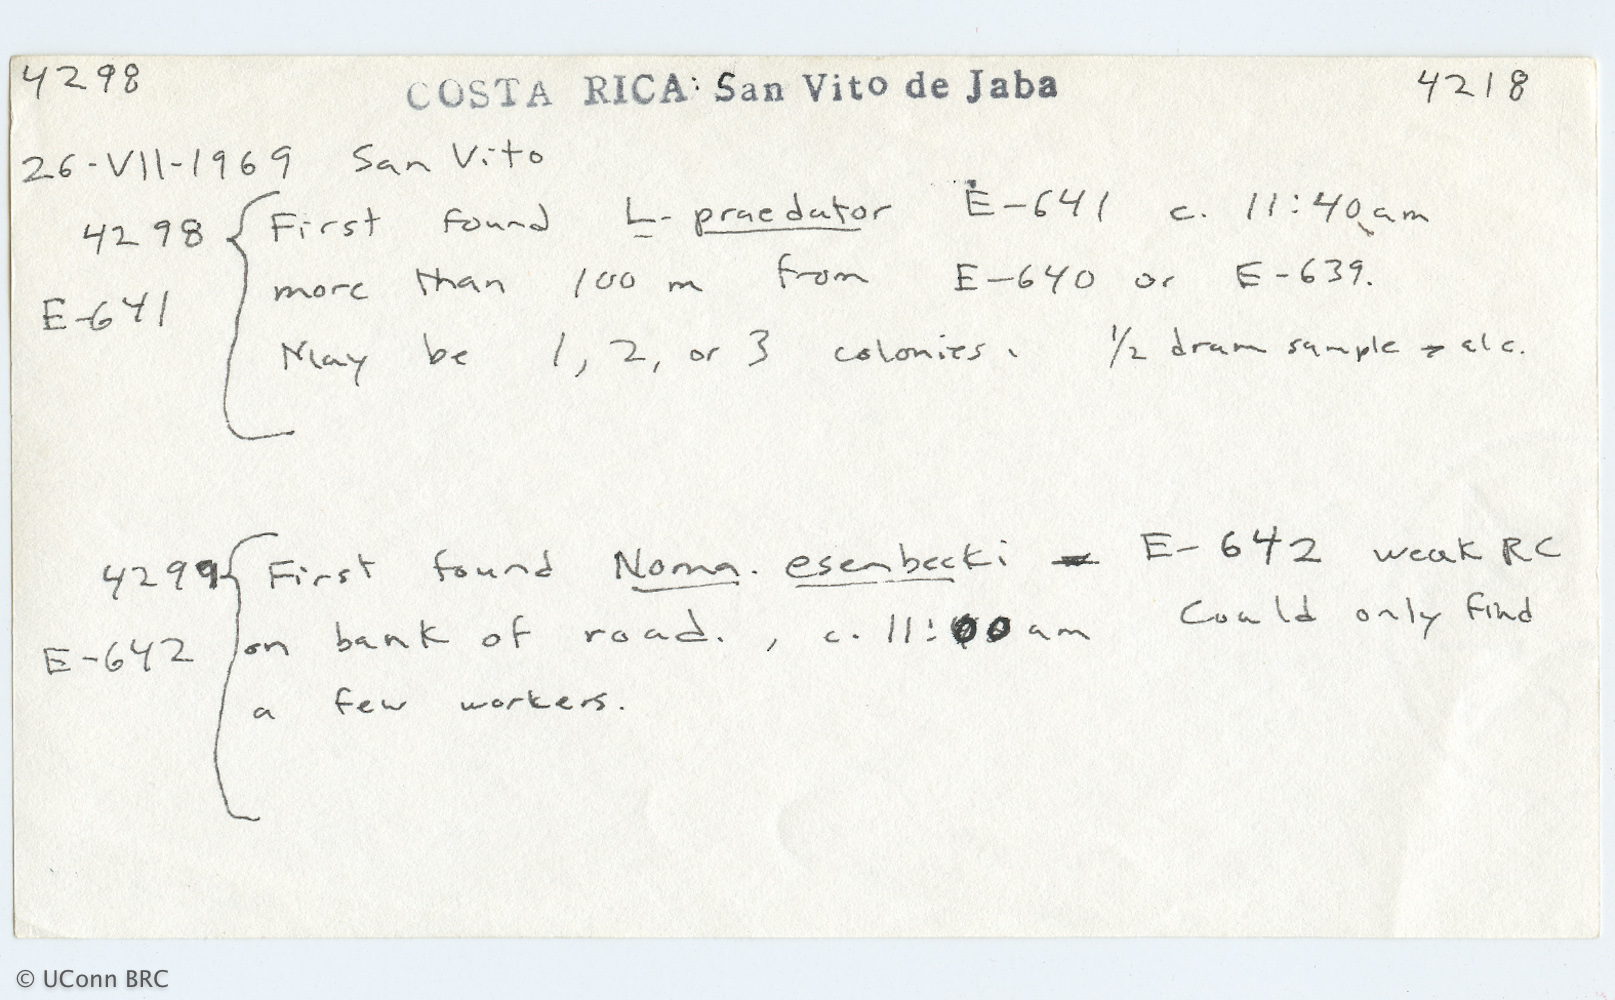 4298 COSTA RICA: San Vito de Jaba 4218
26-VII-1969 San Vito
4298 { First found L. praedator E-641 c. 11:40 am
E-641 more than 100 m from E-640 or E-639.
May be 1, 2, or 3 colonies. 1/2 dram sample → alc.
4299 { First found Noma. esenbecki - E-642 weak RC
E-642 on bank of road., c. 11:00 am Could only find
a few workers.
© UConn BRC